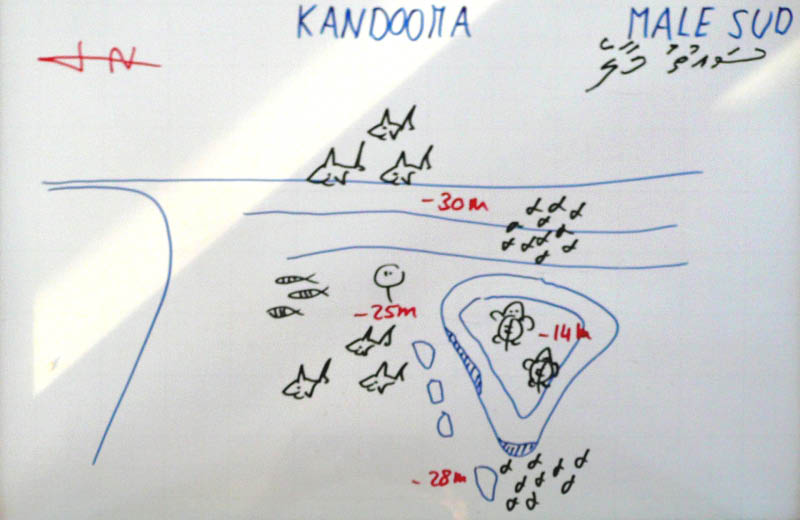 KANDOOMA MALE SUD
N
-30m
-25m
-14m
-28m